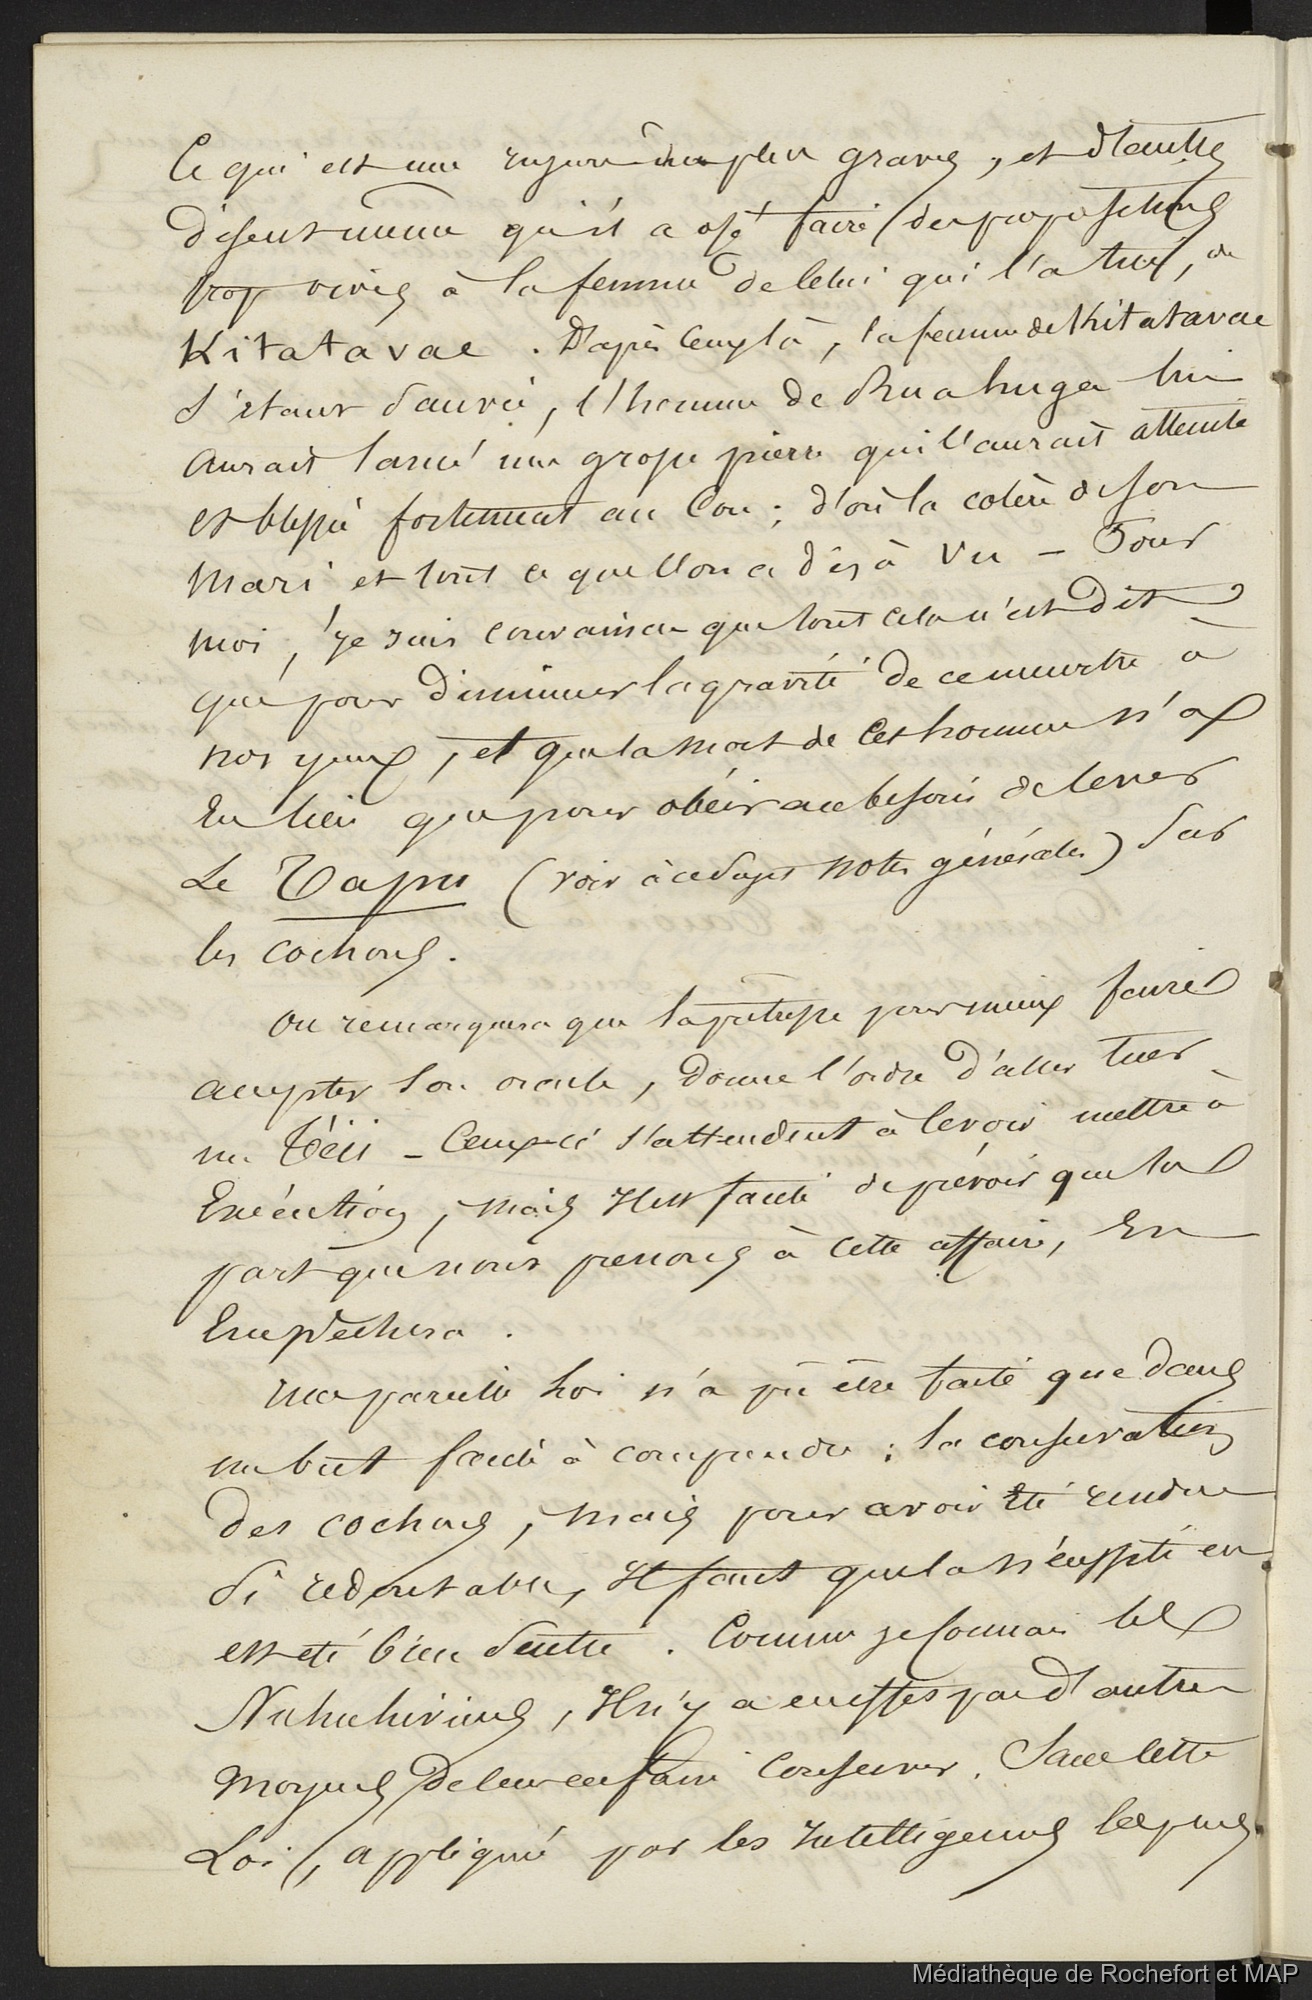 Ce qui est une injure des plus graves, et d'autres
disent même qu'il a osé faire des propositions
trop vives à la femme de celui qui l'a tué, de
Kitatavae. D'après ceux là, la femme de Kitatavae
s'étant sauvée, l'homme de Ruahuga lui
aurait lancé une grosse pierre qui l'aurait atteinte
et blessée fortement au cou ; d'où la colère de son
mari et tout ce que l'on a déjà vu – Pour
moi, je suis convaincu que tout cela n'est dit
que pour diminuer la gravité de ce meurtre à
nos yeux, et que la mort de cet homme n'a
eu lieu que pour obéir au besoin de lever
le Tapu (voir à ce sujet notes générales) sur
les cochons.
On remarquera que la prêtresse pour mieux faire
accepter son oracle, donne l'ordre d'aller tuer
un Téii – Ceux-ci s'attendent à le voir mettre à
exécution, mais il est facile de prévoir que la
part que nous prenons à cette affaire, en
empêchera.
une pareille loi n'a pu être faite que dans
un but facile à comprendre : la conservation
des cochons, mais pour avoir été rendue
si redoutable, il faut que la nécessité en
ait été bien sentie. Comme je connais les
Nukuhiviens, il n'y a en effet pas d'autre
moyens de leur en faire conserver. Sans cette
Loi, appliquée par les intelligences les plus